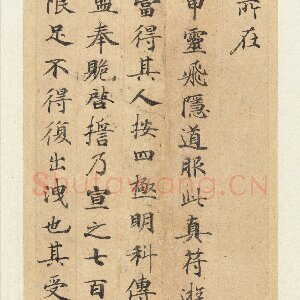 所在
甲靈飛隱道服此真符遊
當得其人按四極明科傳
盟奉貺啓誓乃宣之七百
限足不得復出洩也其受
Shufawang.CN